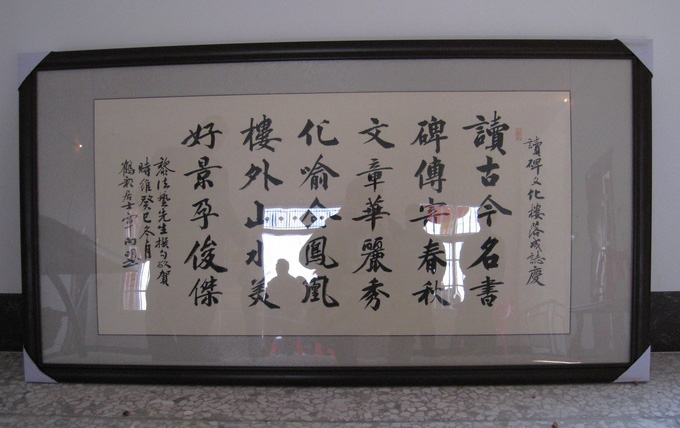 讀碑文化樓落成誌慶
讀古今名書
碑傳字春秋
文章華麗秀
化喻鳳凰
樓外山水美
好景孕俊傑
黎法藝先生撰句敬賀
時維癸巳冬月
居士